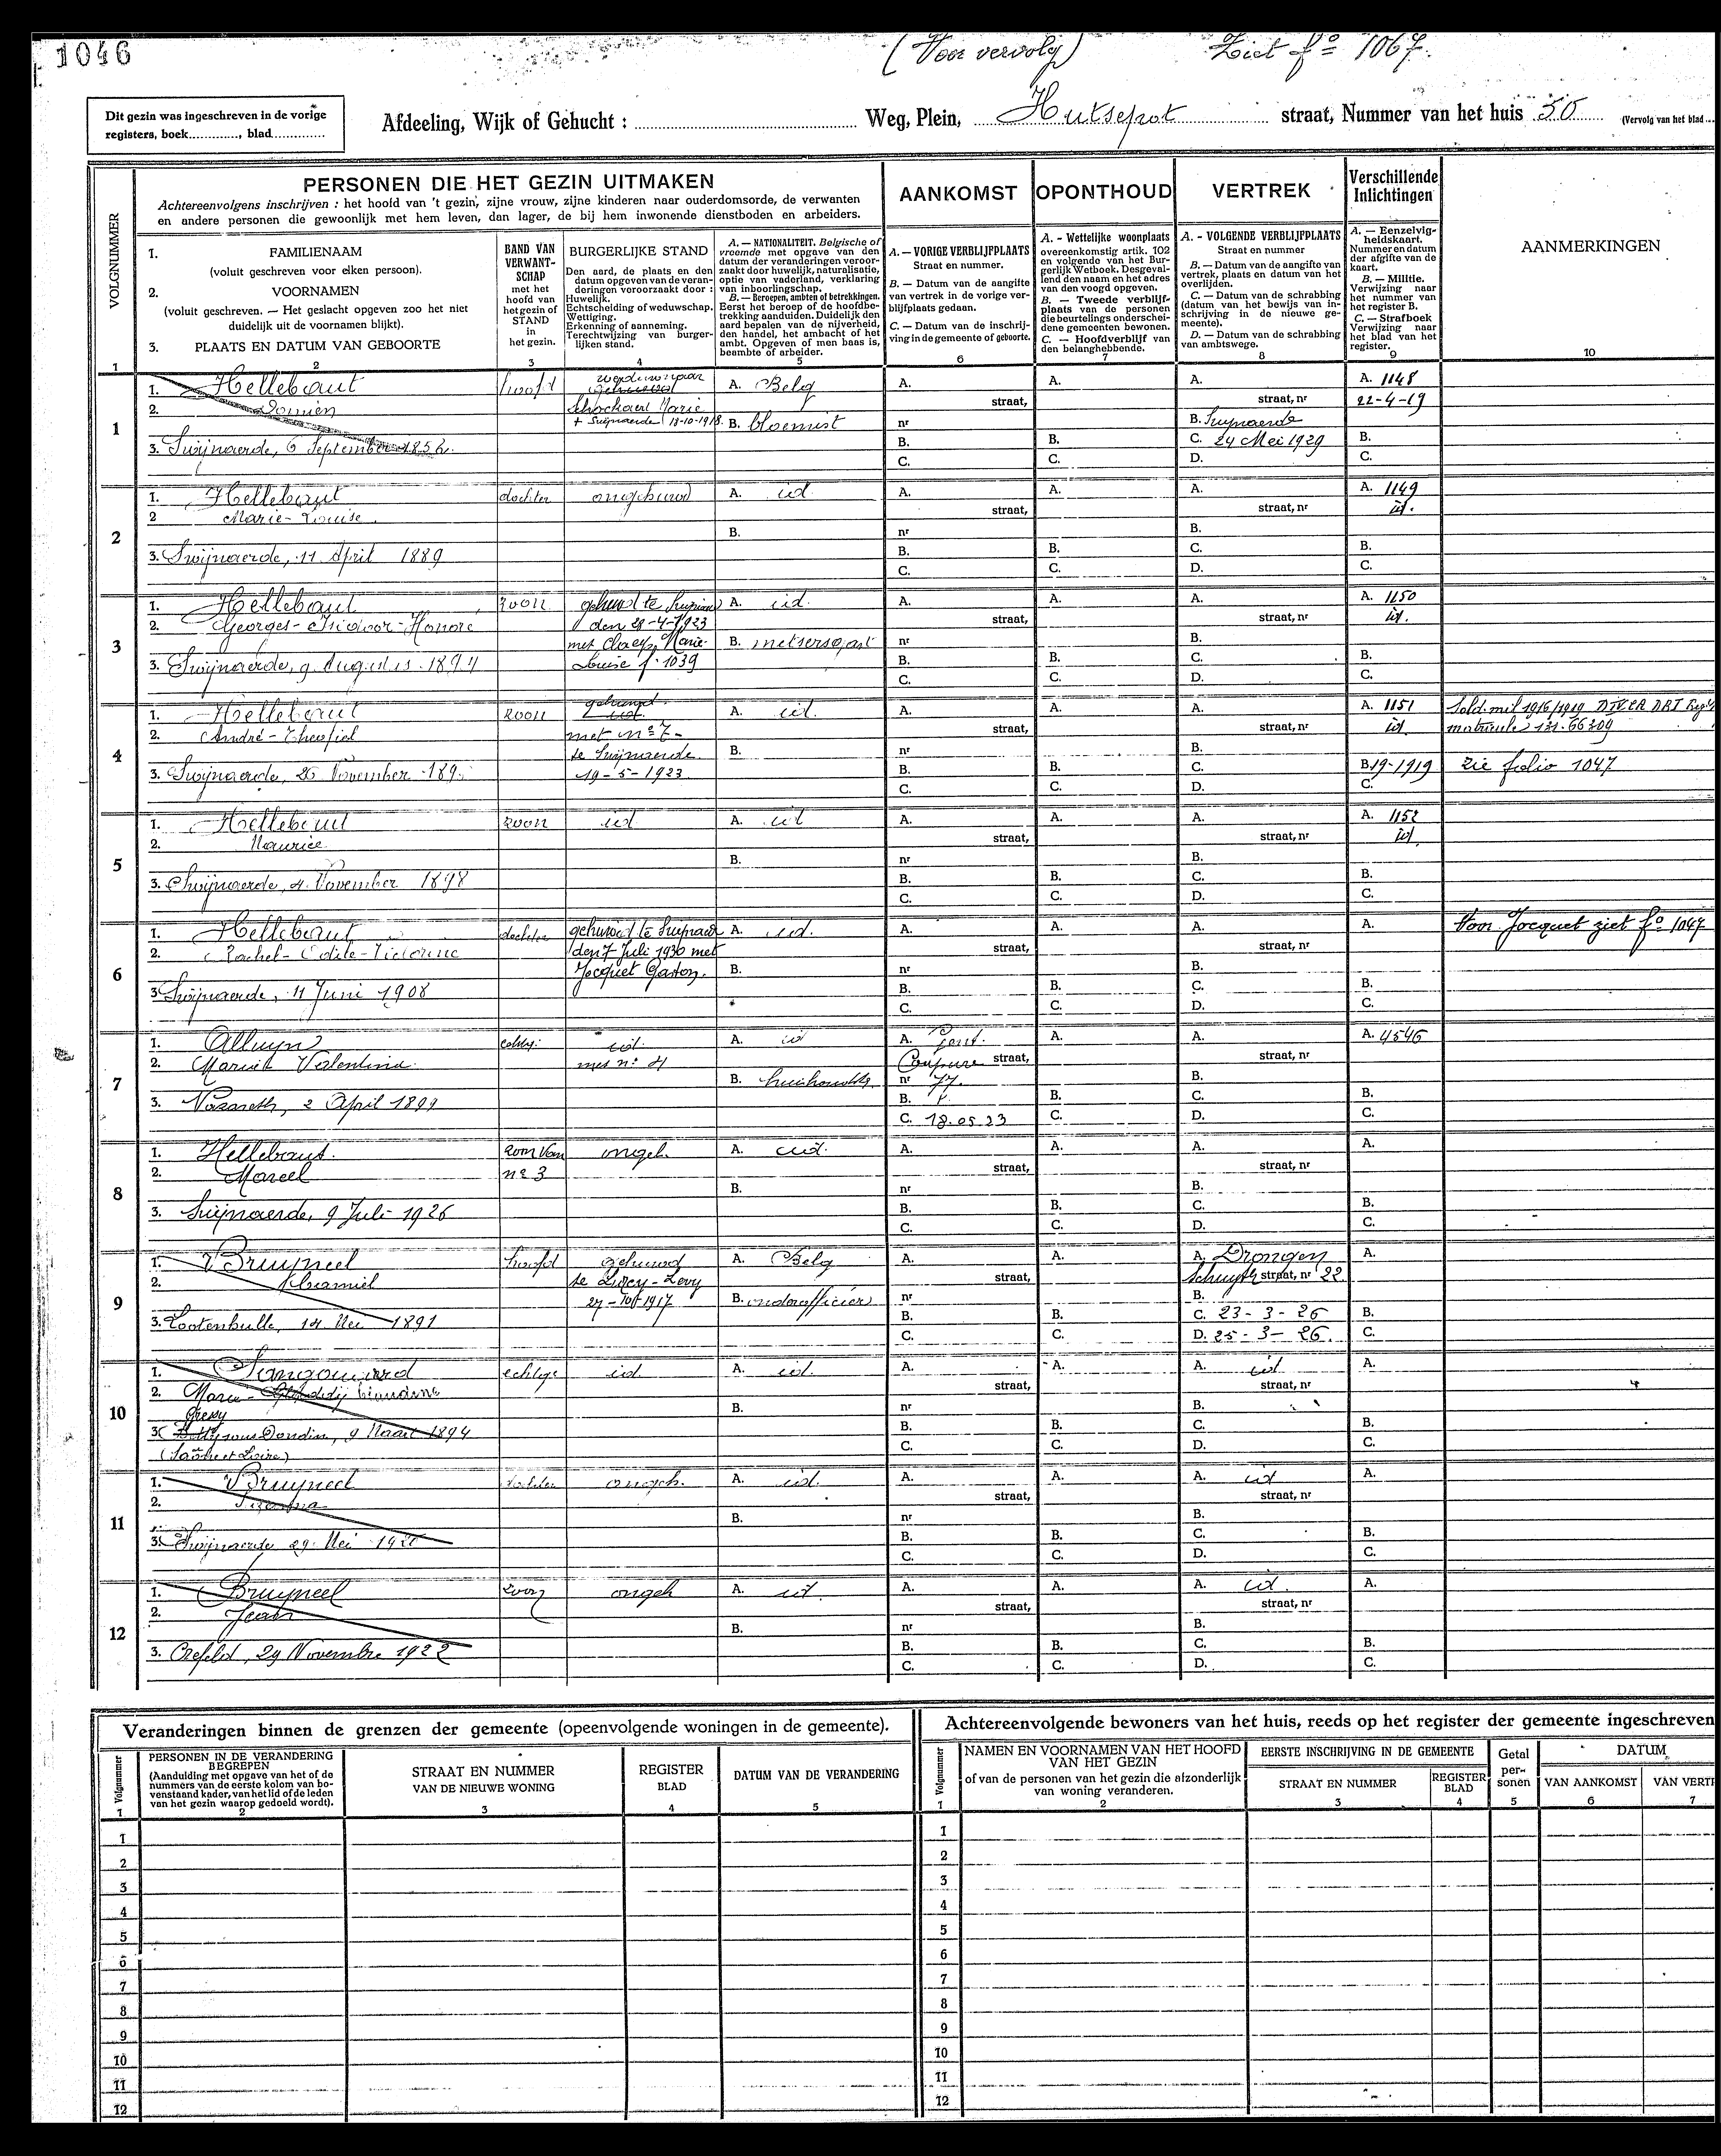 1046
(Voor vervolg) Ziet fo 1067.
Dit gezin was ingeschreven in de vorige
registers, boek............, blad.............
Afdeeling, Wijk of Gehucht : ............ Weg, Plein, Hutsepot straat, Nummer van het huis 50 (Vervolg van het blad...
VOLGNUMMER
PERSONEN DIE HET GEZIN UITMAKEN
Achtereenvolgens inschrijven : het hoofd van 't gezin, zijne vrouw, zijne kinderen naar ouderdomsorde, de verwanten
en andere personen die gewoonlijk met hem leven, dan lager, de bij hem inwonende dienstboden en arbeiders.
1. FAMILIENAAM
(voluit geschreven voor elken persoon).
2. VOORNAMEN
(voluit geschreven. — Het geslacht opgeven zoo het niet
duidelijk uit de voornamen blijkt).
3. PLAATS EN DATUM VAN GEBOORTE
BAND VAN
VERWANT-
SCHAP
met het
hoofd van
het gezin of
STAND
in
het gezin.
BURGERLIJKE STAND
Den aard, de plaats en den
datum opgeven van de veran-
deringen veroorzaakt door :
Huwelijk.
Echtscheiding of weduwschap.
Wettiging.
Erkenning of aanneming.
Terechtwijzing van burger-
lijken stand.
A. — NATIONALITEIT. Belgische of
vreemde met opgave van den
datum der veranderingen veroor-
zaakt door huwelijk, naturalisatie,
optie van vaderland, verklaring
van inboorlingschap.
B. — Beroepen, ambten of betrekkingen.
Eerst het beroep of de hoofdbe-
trekking aanduiden. Duidelijk den
aard bepalen van de nijverheid,
den handel, het ambacht of het
ambt. Opgeven of men baas is,
beambte of arbeider.
AANKOMST
A. — VORIGE VERBLIJFPLAATS
Straat en nummer.
B. — Datum van de aangifte
van vertrek in de vorige ver-
blijfplaats gedaan.
C. — Datum van de inschrij-
ving in de gemeente of geboorte.
OPONTHOUD
A. - Wettelijke woonplaats
overeenkomstig artik. 102
en volgende van het Bur-
gerlijk Wetboek. Desgeval-
lend den naam en het adres
van den voogd opgeven.
B. — Tweede verblijf-
plaats van de personen
die beurtelings onderschei-
dene gemeenten bewonen.
C. — Hoofdverblijf van
den belanghebbende.
VERTREK
A. - VOLGENDE VERBLIJFPLAATS
Straat en nummer
B. — Datum van de aangifte van
vertrek, plaats en datum van het
overlijden.
C. — Datum van de schrabbing
(datum van het bewijs van in-
schrijving in de nieuwe ge-
meente).
D. — Datum van de schrabbing
van ambtswege.
Verschillende
Inlichtingen
A. — Eenzelvig-
heidskaart.
Nummer en datum
der afgifte van de
kaart.
B. — Militie.
Verwijzing naar
het nummer van
het register B.
C. — Strafboek
Verwijzing naar
het blad van het
register.
AANMERKINGEN
1 2 3 4 5 6 7 8 9 10
1
1. Hellebaut hoofd weduwnaar A. Belg A. A. A. A. 1148
2. Domien Schockaert Marie straat, straat, nr 22-4-19
+ Swijnaerde 18-10-1918. B. bloemist nr B. Swijnaerde
3. Swijnaerde, 6 September B. B. C. 24 Mei 1929 B.
C. C. D. C.
2
1. Hellebaut dochter ongehuwd A. id. A. A. A. A. 1149
2 Marie-Louise straat, straat, nr id.
B. nr B.
3. Swijnaerde, 11 April 1889 B. B. C. B.
C. C. D. C.
3
1. Hellebaut zoon gehuwd te A. id. A. A. A. A. 1150
2. Georges-Isidoor-Honoré den 29-4-1923 straat, straat, nr id.
met Claeys Marie- B. metsersgast nr B.
3. Swijnaerde, 9 Augustus 1894 Louise f. 1039 B. B. C. B.
C. C. D. C.
4
1. Hellebaut zoon gehuwd A. id. A. A. A. A. 1151 Sold. mil 1916/1919
2. André-Theofiel met no 7- straat, straat, nr id.
te Swijnaerde B. nr B.
3. Swijnaerde, 26 November 19-5-1923 B. B. C. B 19-1919 zie folio 1047
C. C. D. C.
5
1. Hellebaut zoon id A. id A. A. A. A. 1152
2. Maurice straat, straat, nr id.
B. nr B.
3. Swijnaerde, 4 November 1898 B. B. C. B.
C. C. D. C.
6
1. Hellebaut dochter gehuwd te A. id. A. A. A. A. Voor Jocquet ziet fo 1047
2. Rachel-Odile-Victorine den 7 Juli 1930 met straat, straat, nr
Jocquet Gaston. B. nr B.
3 Swijnaerde, 11 Juni 1908 B. B. C. B.
C. C. D. C.
7
1. Alluyn echtg. id. A. id A. Gent. A. A. A. 4546
2. Valentina met no 4 Coupure straat, straat, nr
B. nr 77. B.
3. Nazareth, 2 April 1899 B. B. C. B.
C. 18.05.23 C. D. C.
8
1. Hellebaut. zoon van ongeh. A. id. A. A. A. A.
2. Marcel no 3 straat, straat, nr
B. nr B.
3. Swijnaerde, 9 Juli 1926 B. B. C. B.
C. C. D. C.
9
1. Bruyneel hoofd gehuwd A. Belg A. A. A. Drongen A.
2. Kamiel straat, straat, nr 22.
B. onderofficier nr B.
3. Lootenhulle, 14 Mei 1891 B. B. C. 23-3-26 B.
C. C. D. 25-3-26. C.
10
1. echtge id. A. id. A. A. A. id A.
2. straat, straat, nr
Gressy B. nr B.
3 9 Maart 1894 B. B. C. B.
(Saône et Loire) C. C. D. C.
11
1. Bruyneel dochter ongeh. A. id. A. A. A. id A.
2. straat, straat, nr
B. nr B.
3. Swijnaerde 29 Mei 1920 B. B. C. B.
C. C. D. C.
12
1. Bruyneel zoon ongeh A. id. A. A. A. id. A.
2. Jean straat, straat, nr
B. nr B.
3. Crefeld, 29 Novembre 1922 B. B. C. B.
C. C. D. C.
Veranderingen binnen de grenzen der gemeente (opeenvolgende woningen in de gemeente).
Volgnummer
PERSONEN IN DE VERANDERING
BEGREPEN
(Aanduiding met opgave van het of de
nummers van de eerste kolom van bo-
venstaand kader, van het lid of de leden
van het gezin waarop gedoeld wordt).
STRAAT EN NUMMER
VAN DE NIEUWE WONING
REGISTER
BLAD
DATUM VAN DE VERANDERING
1 2 3 4 5
1
2
3
4
5
6
7
8
9
10
11
12
Achtereenvolgende bewoners van het huis, reeds op het register der gemeente ingeschreven
Volgnummer
NAMEN EN VOORNAMEN VAN HET HOOFD
VAN HET GEZIN
of van de personen van het gezin die afzonderlijk
van woning veranderen.
EERSTE INSCHRIJVING IN DE GEMEENTE
STRAAT EN NUMMER
REGISTER
BLAD
Getal
per-
sonen
DATUM
VAN AANKOMST VAN VERT
1 2 3 4 5 6 7
1
2
3
4
5
6
7
8
9
10
11
12